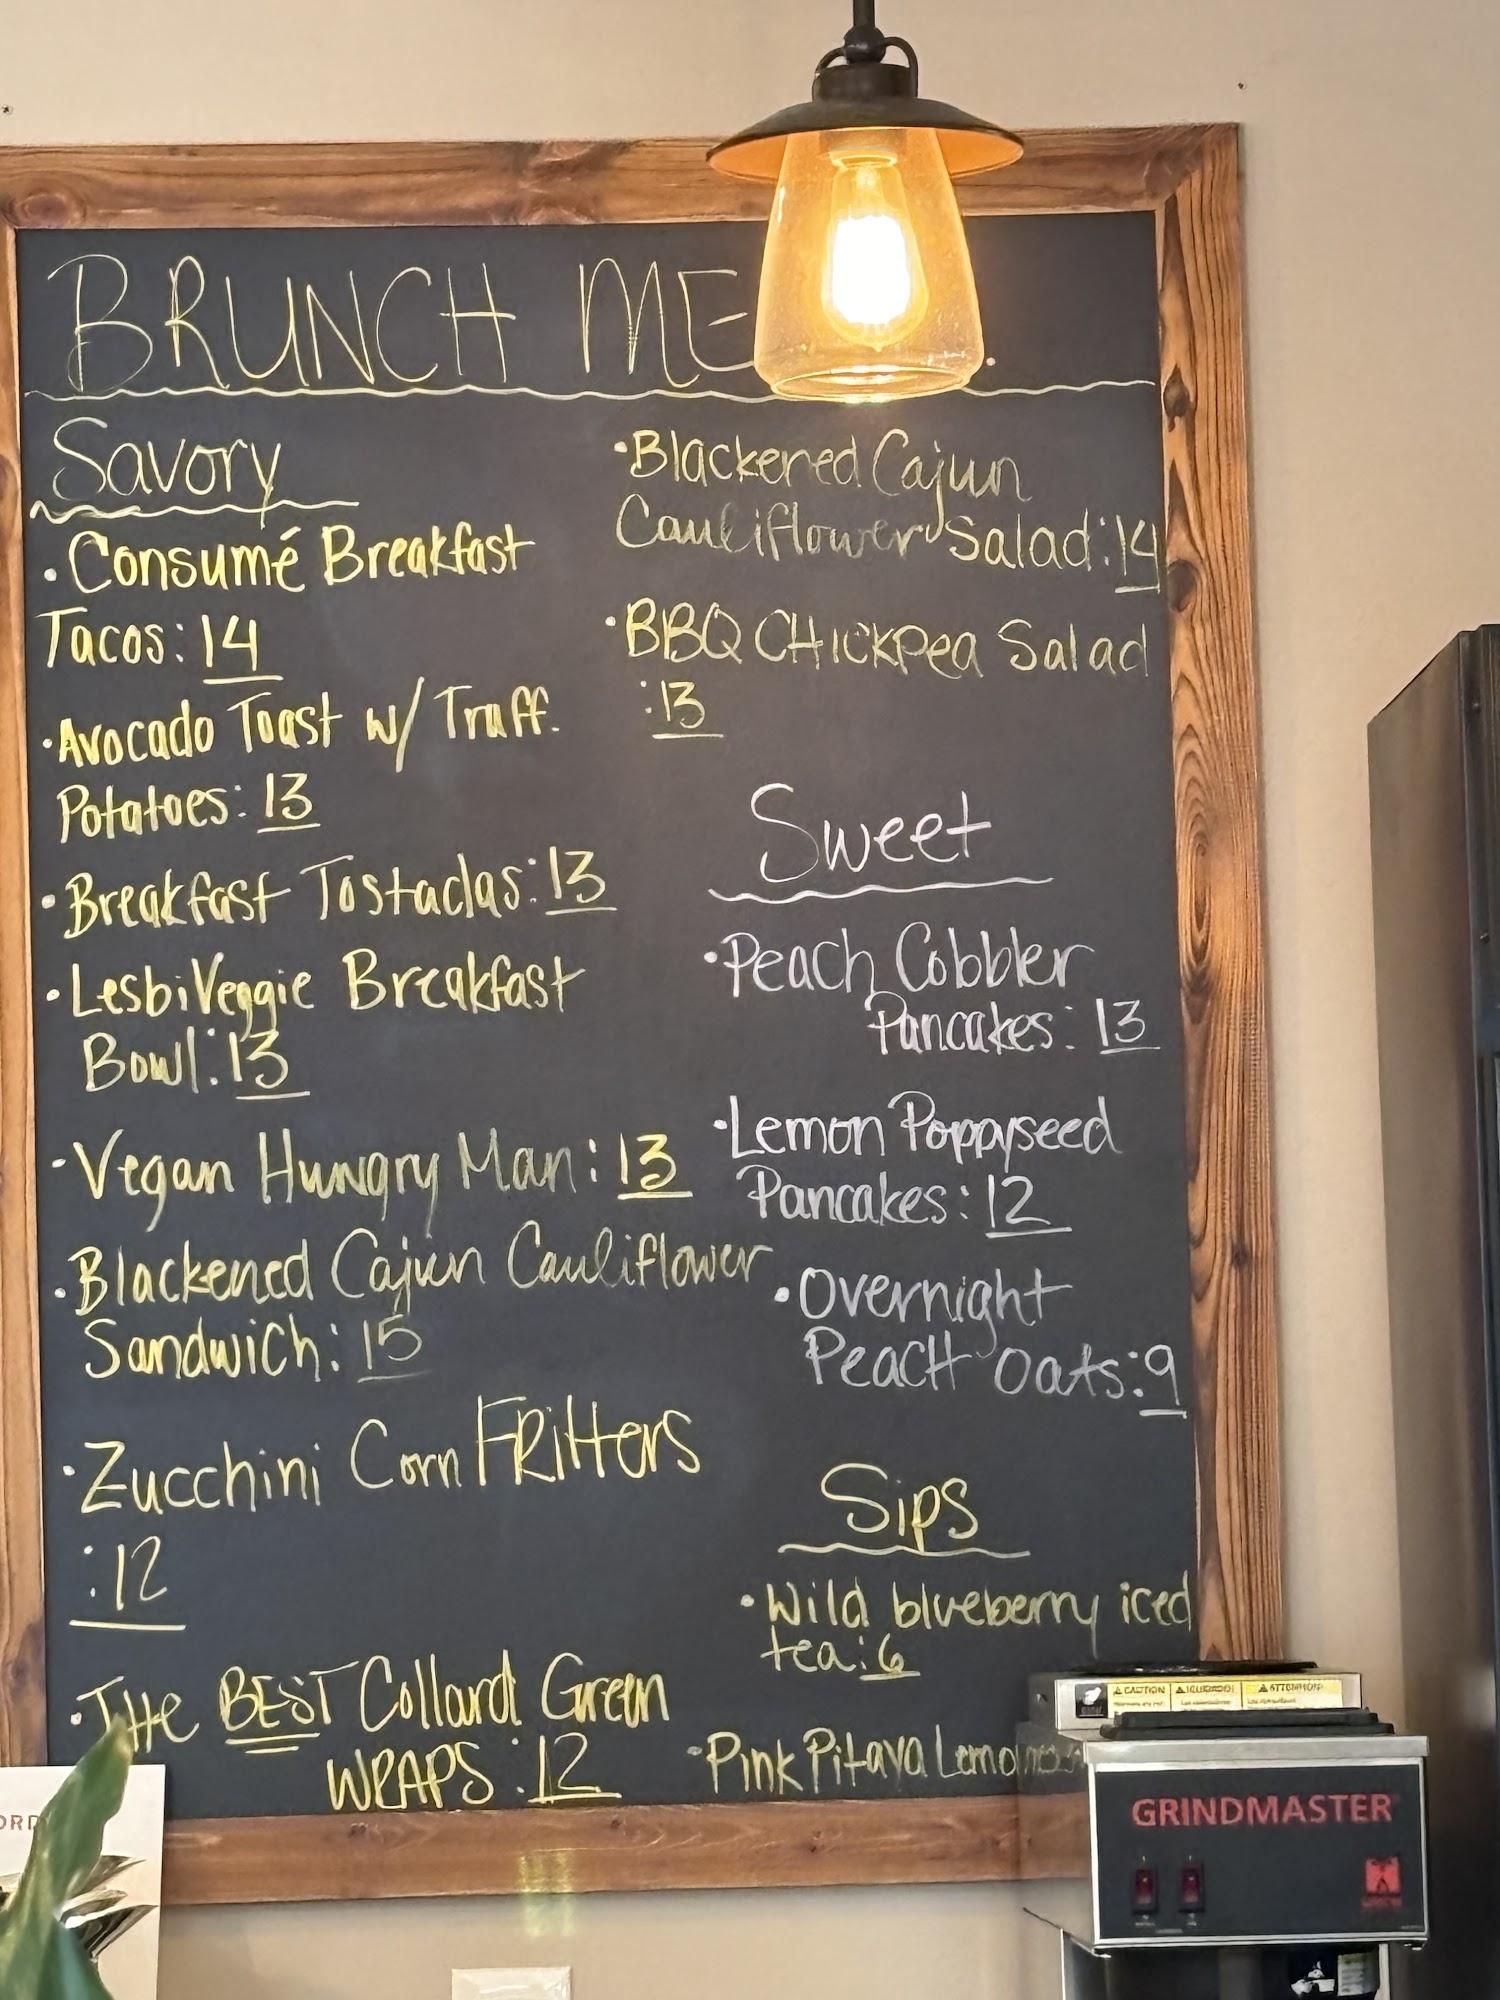 BRUNCH ME
Savory
• Consumé Breakfast
Tacos: 14
• Avocado Toast w/ Truff.
Potatoes: 13
• Breakfast Tostadas: 13
• LesbiVeggie Breakfast
Bowl: 13
• Vegan Hungry Man: 13
• Blackened Cajun Cauliflower
Sandwich: 15
• Zucchini Corn FRitters
: 12
• THe BEST Collard Green
WRAPS: 12
• Blackened Cajun
Cauliflower Salad: 14
• BBQ CHickpea Salad
: 13
Sweet
• Peach Cobbler
Pancakes: 13
• Lemon Poppyseed
Pancakes: 12
• Overnight
PEACH Oats: 9
Sips
• Wild blueberry iced
tea: 6
• Pink Pitaya
CAUTION
ATTENTION
GRINDMASTER